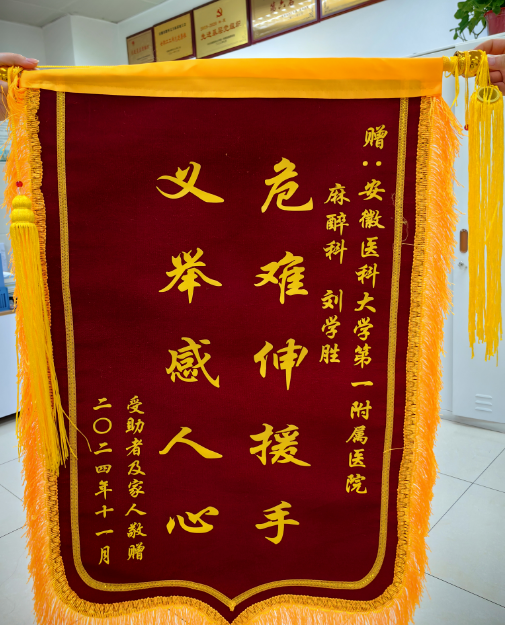 赠：安徽医科大学第一附属医院
麻醉科 刘学胜
危难伸援手
义举感人心
受助者及家人敬赠
二〇二四年十一月